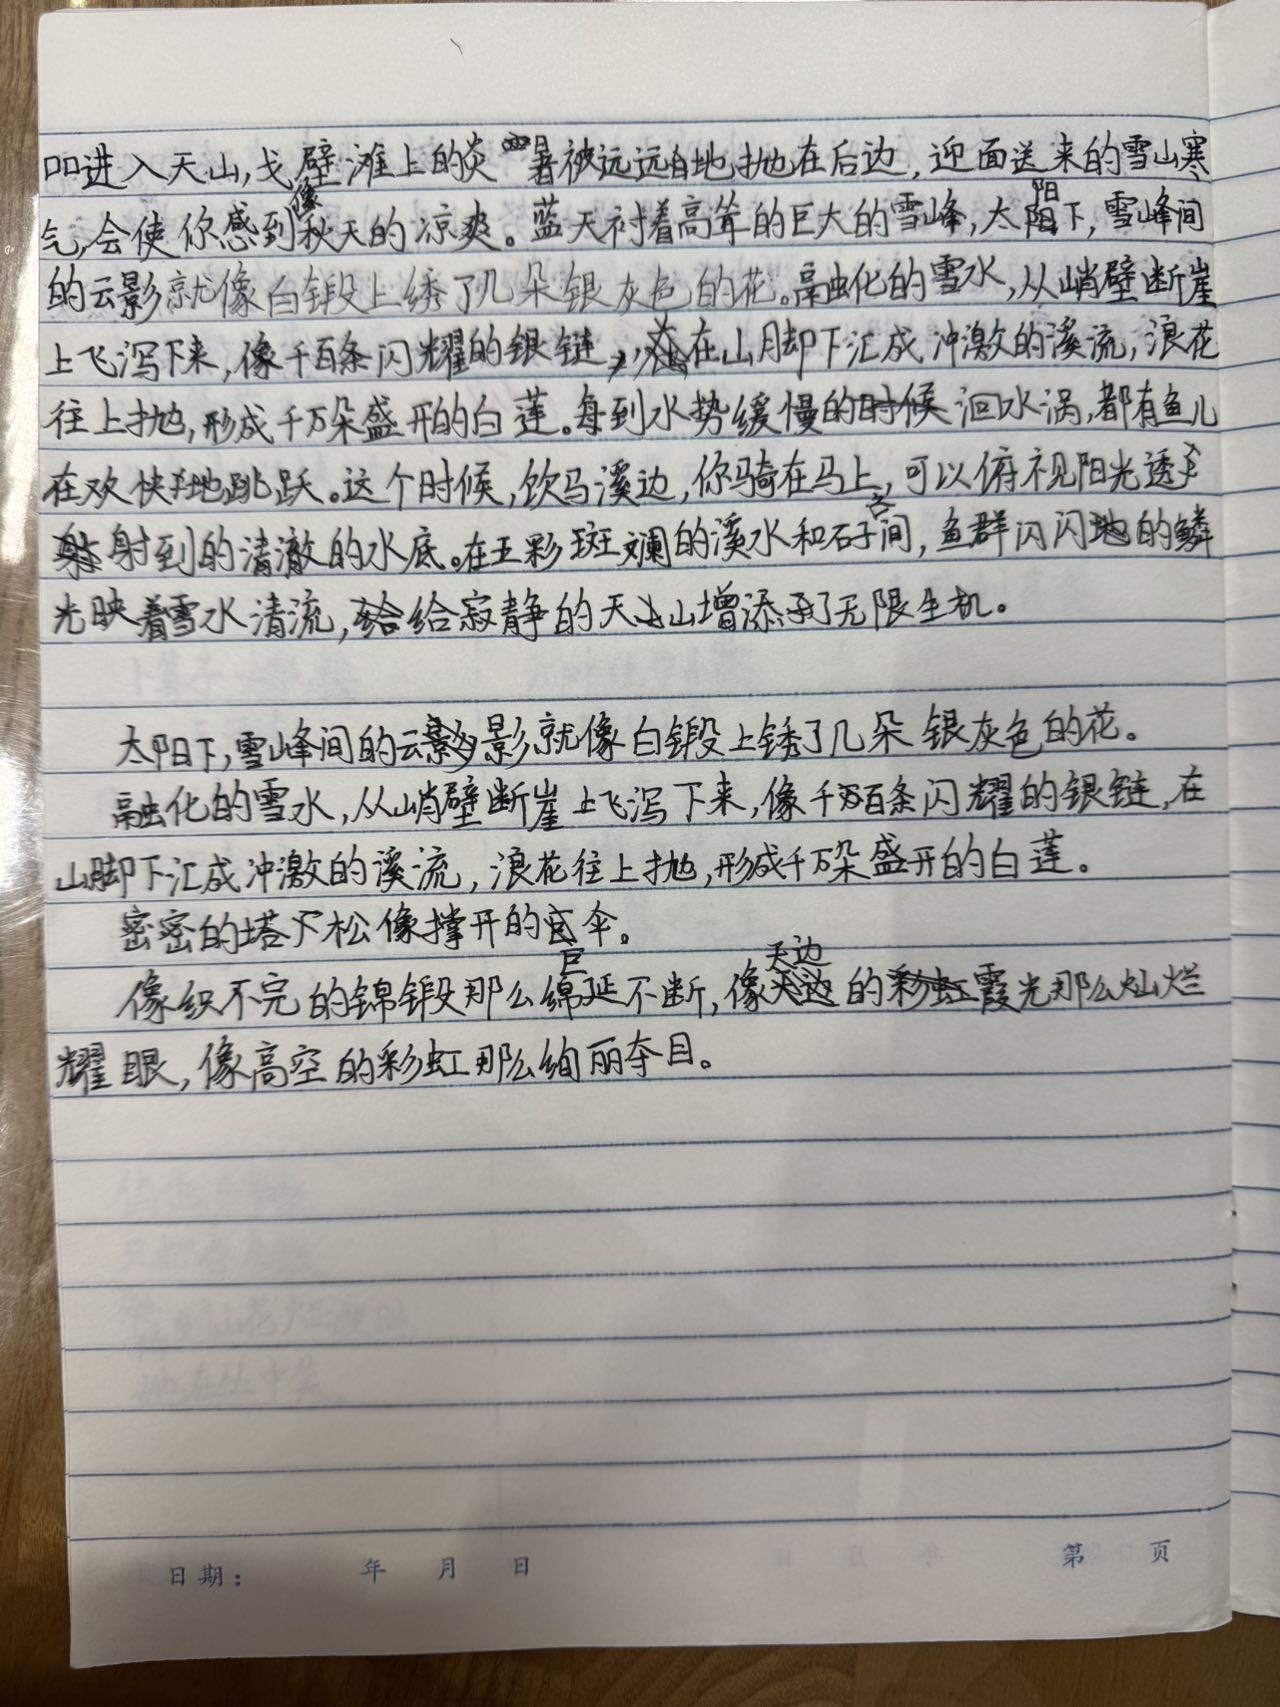 进入天山,戈壁滩上的炎暑被远远地抛在后边,迎面送来的雪山寒
气,会使你感到像秋天的凉爽。蓝天衬着高耸的巨大的雪峰,太阳下,雪峰间
的云影就像白锻上绣了几朵银灰色的花。融化的雪水,从峭壁断崖
上飞泻下来,像千百条闪耀的银链,在山脚下汇成冲激的溪流,浪花
往上抛,形成千万朵盛开的白莲。每到水势缓慢的洄水涡,都有鱼儿
在欢快地跳跃。这个时候,饮马溪边,你骑在马上,可以俯视阳光透
射到的清澈的水底。在五彩斑斓的溪水和石子间,鱼群闪闪的鳞
光映着雪水清流,给寂静的天山增添了无限生机。
太阳下,雪峰间的云影就像白锻上锈了几朵银灰色的花。
融化的雪水,从峭壁断崖上飞泻下来,像千百条闪耀的银链,在
山脚下汇成冲激的溪流,浪花往上抛,形成千万朵盛开的白莲。
密密的塔松像撑开的巨伞。
像织不完的锦锻那么绵延不断,像天边的霞光那么灿烂
耀眼,像高空的彩虹那么绚丽夺目。
日期: 年 月 日 第 页